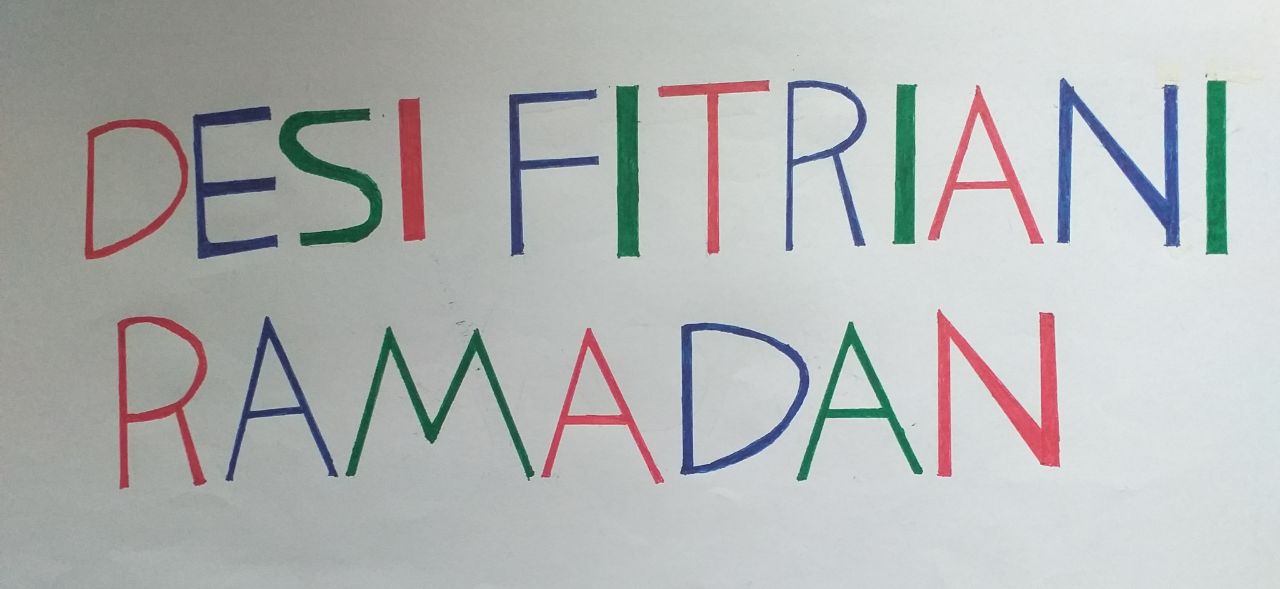 DESI FITRIANI
RAMADAN